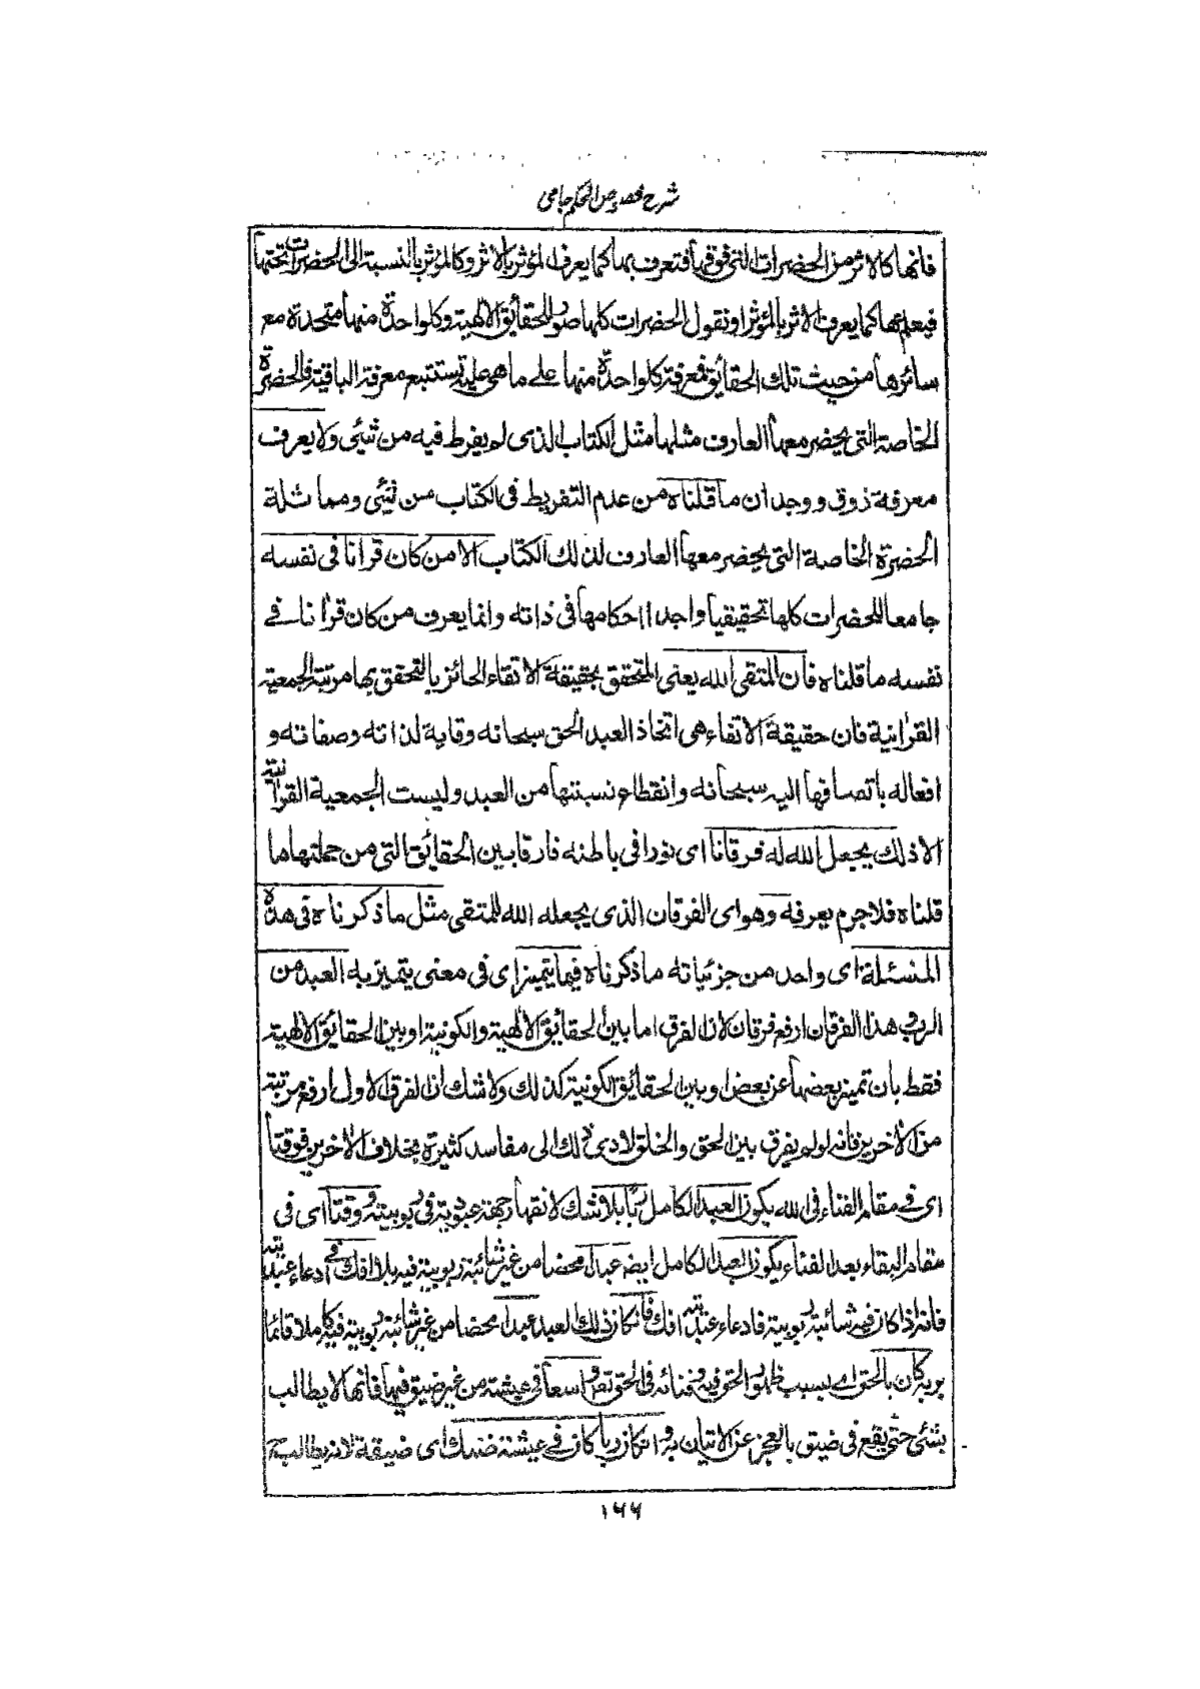 شرح فصوص الحکم جامی
فانها كالاثر من الحضرات التى فوقها فتعرف بها كما يعرف المؤثر بالاثر وكالمؤثر بالنسبة الى الحضرات تحتها
فيعلمها كما يعرف الاثر بالمؤثر او نقول الحضرات كلها صور للحقائق الالٰهية وكل واحدة منها متحدة مع
سائرها من حيث تلك الحقائق فمعرفة كل واحدة منها على ما هى عليه تستتبع معرفة الباقية فالحضرة
الخاصة التى يحضر معها العارف مثلها مثل الكتاب الذى لم يفرط فيه من شئى ولا يعرف
معرفة ذوق ووجدان ما قلناه من عدم التفريط فى الكتاب من شئى ومماثلة
الحضرة الخاصة التى يحضر معها العارف لذلك الكتاب الا من كان قرانا فى نفسه
جامعا للحضرات كلها تحقيقيا واجدا احكامها فى ذاته وانما يعرف من كان قرانا فے
نفسه ما قلناه فان المتقى الله يعنى المتحقق بحقيقة الاتقاء الحائز بالتحقق بها مرتبة الجمعية
القراٰنية فان حقيقة الاتقاء هى اتخاذ العبد الحق سبحانه وقاية لذاته وصفاته و
افعاله باتصافها اليه سبحانه وانقطاع نسبتها من العبد وليست الجمعية القراٰنية
الا ذلك يجعل الله له فرقانا اى نورا فى باطنه فارقا بين الحقائق التى من جملتها ما
قلناه فلا جرم يعرفه وهو اى الفرقان الذى يجعله الله للمتقى مثل ما ذكرناه فى هذه
المسئلة اى واحد من جزئياته ما ذكرناه فيما يتميز اى فى معنى يتميز به العبد من
الرب وهذا الفرقان ارفع فرقان لان الفرق اما بين الحقائق الالٰهية والكونية او بين الحقائق الالٰهية
فقط بان تميز بعضها عن بعض او بين الحقائق الكونية كذلك ولا شك ان الفرق الاول ارفع مرتبة
من الاٰخرين فانه لو لم يفرق بين الحق والخلق لادى ذلك الى مفاسد كثيرة بخلاف الاٰخرين فوقتا
اى فے مقام الفناء فى الله يكون العبد الكامل ربا بلا شك لانقهار جهة عبوديته فى ربوبيته ووقتا اى فى
مقام البقاء بعد الفناء يكون العبد الكامل ايضا عبدا محضا من غير شائبة ربوبية فيه بلا افك فے ادعاء عبديته
فانه اذا كان فيه شائبة ربوبية فادعاء عبديته افك فان كان ذلك العبد عبدا محضا من غير شائبة ربوبية فيه كاملا قائما
بربه كان بالحق اے بسبب ظهور الحق فيه وفنائه فى الحق تقى واسعا فى عيشة من غير ضيق فيها فانه لا يطالب
بشئى حتى يقع فى ضيق بالعجز عن الاتيان به وان كان ربا كان فے عيشة ضنك اى ضيقة لانه يطالب
۱۶۶